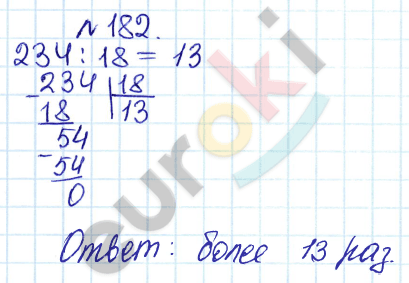 № 182.
234 : 18 = 13
234 | 18
- 18 | 13
54
- 54
0
Ответ: более 13 раз.
euroki